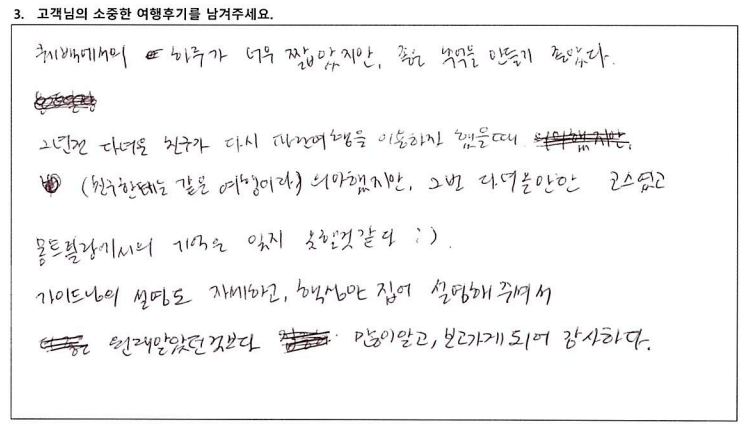 3. 고객님의 소중한 여행후기를 남겨주세요.
퀘백에서의 하루가 너무 짧았지만, 좋은 추억을 만들기 좋았다.
2년전 다녀온 친구가 다시 파란여행을 이용하자 했을때
(친구한테는 같은 여행이라) 의아했지만, 2번 다녀올만한 코스였고
몽트랑블랑에서의 기억은 잊지 못할것같다 :).
가이드님의 설명도 자세하고, 핵심만 집어 설명해 주셔서
원래알았던것보다 많이알고, 보고가게되어 감사하다.